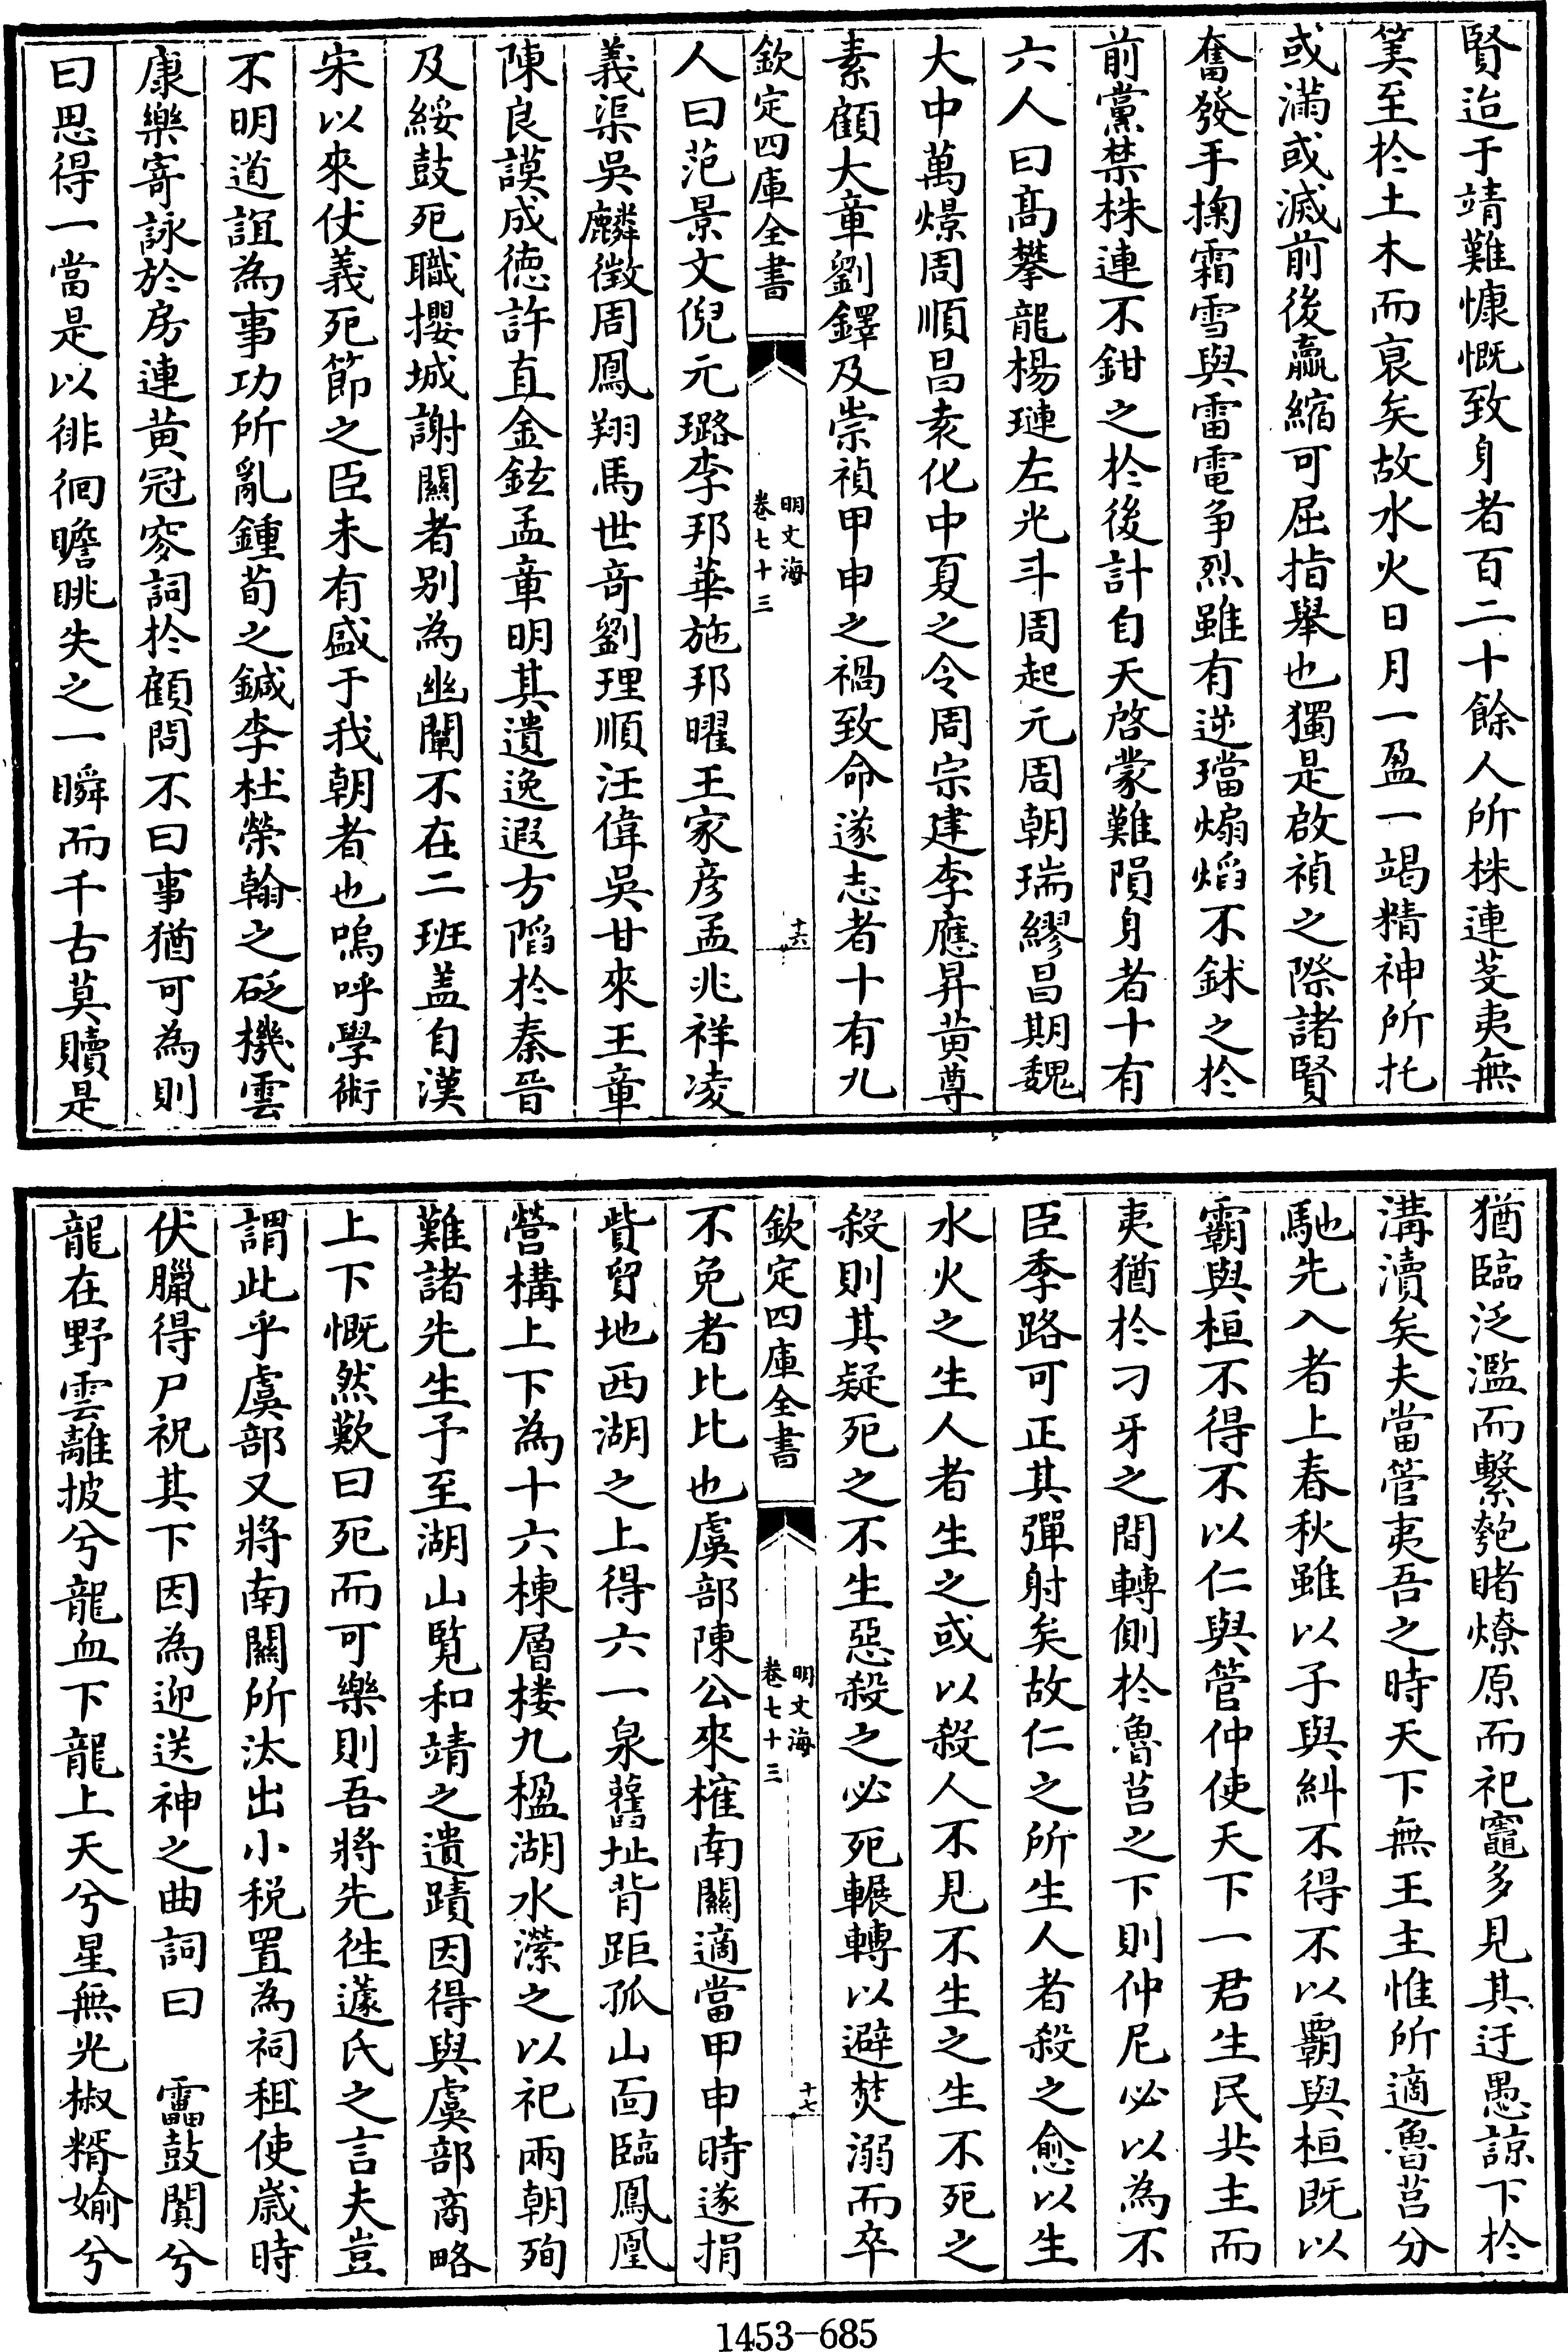 賢迨于靖難慷慨致身者百二十餘人所株連芟夷無
筭至扵土木而哀矣故水火日月一盈一竭精神所托
或滿或滅前後贏縮可屈指舉也獨是啟禎之際諸賢
奮發手掬霜雪與雷電争烈雖有逆璫煽熖不鉥之扵
前黨禁株連不鉗之扵後計自天啓蒙難隕身者十有
六人曰髙攀龍楊璉左光斗周起元周朝瑞繆昌期魏
大中萬燝周順昌袁化中夏之令周宗建李應昇黄尊
素顧大章劉鐸及崇禎甲申之禍致命遂志者十有九
欽定四庫全書
明文海
卷七十三
十六
人曰范景文倪元璐李邦華施邦曜王家彦孟兆祥凌
義渠吳麟徴周鳳翔馬世竒劉理順汪偉吳甘來王章
陳良謨成徳許直金鉉孟章明其遺逸遐方陷扵秦晉
及綏鼓死職攖城謝闗者别為幽闡不在二班盖自漢
宋以來仗義死節之臣未有盛于我朝者也嗚呼學術
不明道誼為事功所亂鍾荀之鍼李杜榮翰之砭機雲
康樂寄詠於房連黄冠寥詞扵顧問不曰事猶可為則
曰思得一當是以徘徊瞻眺失之一瞬而千古莫贖是
猶臨泛濫而繫匏睹燎原而祀竈多見其迂愚諒下扵
溝瀆矣夫當管夷吾之時天下無王主惟所適魯莒分
馳先入者上春秋雖以子與糾不得不以覇與桓既以
霸與桓不得不以仁與管仲使天下一君生民共主而
夷猶扵刁牙之間轉側扵魯莒之下則仲尼必以為不
臣季路可正其彈射矣故仁之所生人者殺之愈以生
水火之生人者生之或以殺人不見不生之生不死之
殺則其疑死之不生惡殺之必死輾轉以避焚溺而卒
欽定四庫全書
明文海
卷七十三
十七
不免者比比也虞部陳公來榷南闗適當甲申時遂捐
貲貿地西湖之上得六一泉舊址背距孤山靣臨鳳凰
營構上下為十六棟層楼九楹湖水瀠之以祀兩朝殉
難諸先生予至湖山覧和靖之遺蹟因得與虞部商略
上下慨然歎曰死而可樂則吾將先徃蘧氏之言夫豈
謂此乎虞部又將南闗所汰出小税置為祠租使嵗時
伏臘得尸祝其下因為迎送神之曲詞曰　靁鼓闐兮
龍在野雲離披兮龍血下龍上天兮星無光椒糈婾兮
1453—685